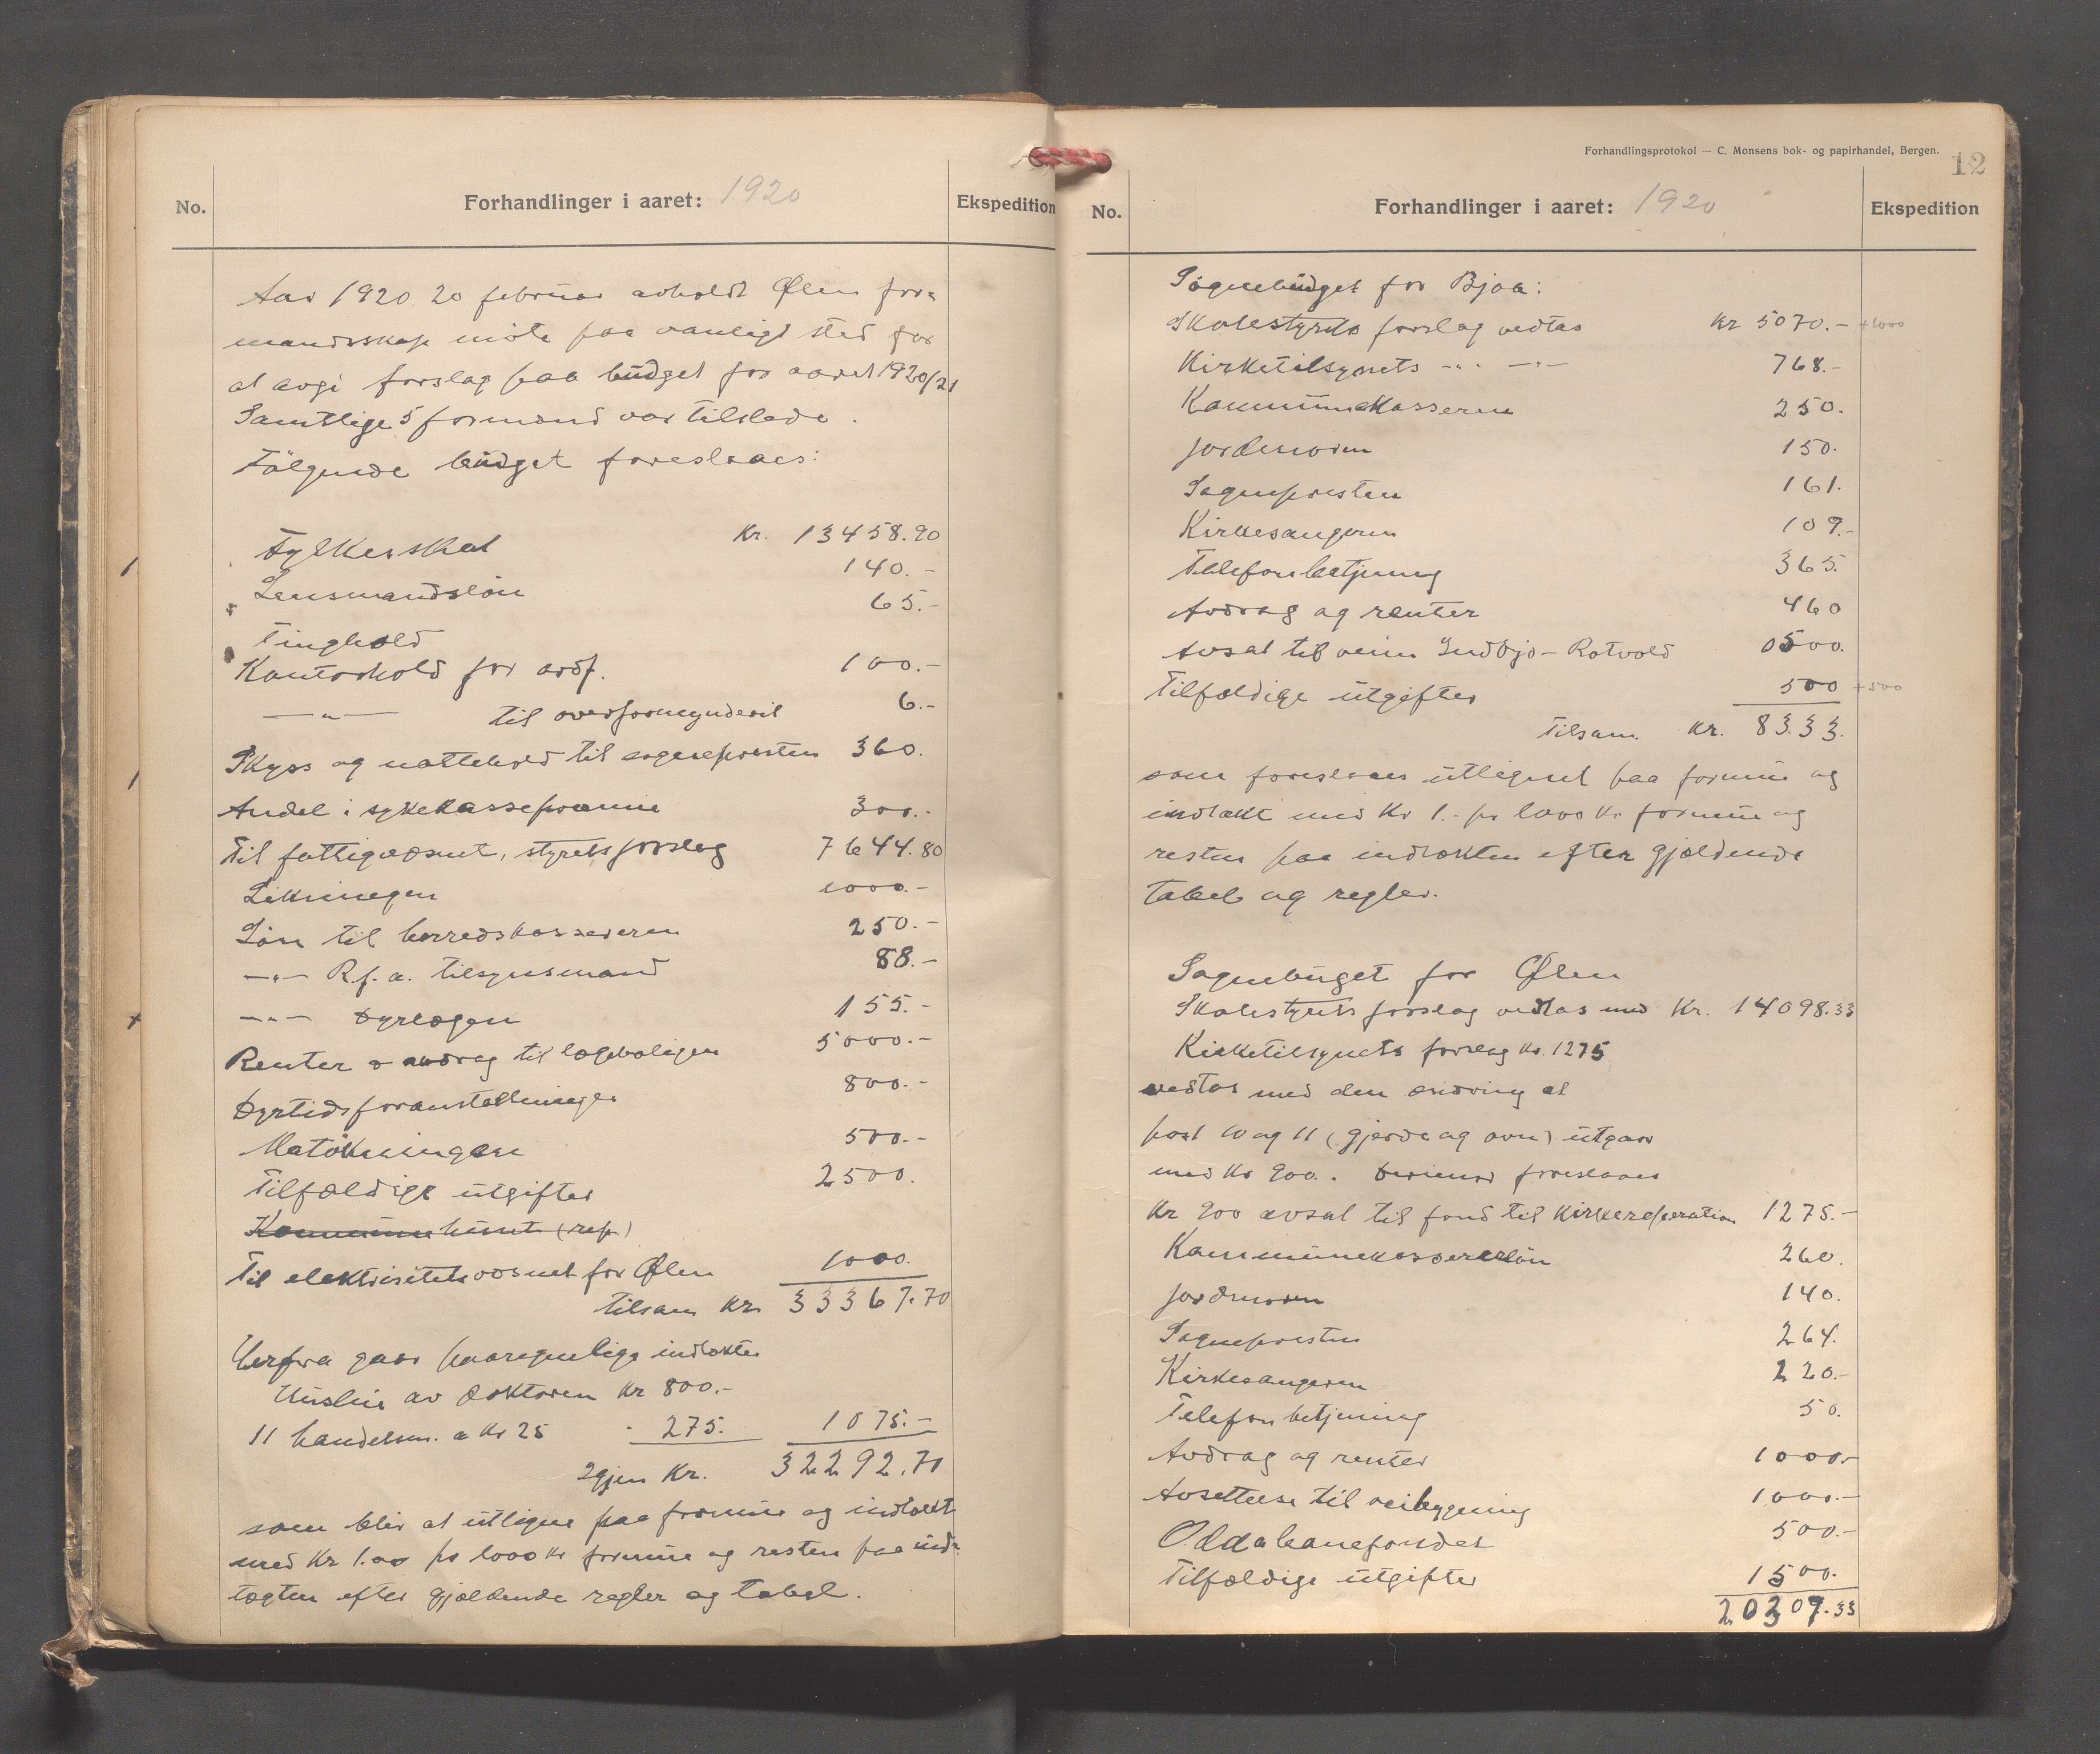 No.
Forhandlinger i aaret: 1920
Ekspedition
Aar 1920 20 februar avholdt Ølen for-
mandsskap møte paa vanligt sted for
at avgi forslag paa budget for aaret 1920/21
Samtlige 5 formænd var tilstede.
Følgende budget foreslaaes:
Fylkesskat Kr. 13458.90
Lensmandsløn 140.-
Tinghold 65.-
Kontorhold for ordf. 100.-
—"— til overformynderil 6.-
Skyss og nattehold til sognepresten 360.
Andel i sykekassepræmie 300.-
Til fattigvæsnet, styrets forslag 7644.80
Likningen 1000.-
Løn til herredskassereren 250.-
—"— R.f.a. tilsynsmand 88.-
—"— Dyrlægen 155.-
Renter & avdrag til lægeboligen 5000.-
Dyrtidsforanstaltninger 800.-
Matøkningen 500.-
Tilfældige utgifter 2500.
Kommunehuset (rep)
Til elektrisitetsvæsnet for Ølen 1000.
Tilsam Kr. 33367.70
Herfra gaar paaregnelige indtækter
Husleie av doktoren Kr 800.-
11 handelsm. a Kr 25 " 275. 1075.-
Igjen Kr. 32292.70
som blir at utligne paa formue og indtækt
med Kr 1.00 pr 1000 Kr formue og resten paa ind-
tægten efter gjældende regler og tabel.
Forhandlingsprotokol — C. Monsens bok- og papirhandel, Bergen.
12
No.
Forhandlinger i aaret: 1920
Ekspedition
Sognebudget for Bjoa:
Skolestyrets forslag vedtas Kr 5070.- +1000
Kirketilsynets —"— —"— 768.-
Kommunekasseren 250.
Jordmoren 150.
Sognepresten 161.
Kirkesangeren 109.-
Telefonbetjening 365.
Avdrag og renter 460
Avsat til veien Indbjo - Rotvold 0500.
Tilfældige utgifter 500 +500
Tilsam. Kr. 8333.
som foreslaaes utlignet paa formue og
indtækt med Kr 1.- pr 1000 Kr formue og
resten paa indtækten efter gjældende
tabel og regler.
Sognebuget for Ølen
Skolestyrets forslag vedtas med Kr. 14098.33
Kirketilsynets forslag Kr. 1275
vedtas med den ændring at
post 10 og 11 (gjerde og ovn) utgaar
med Kr 900. Derimot foreslaaes
Kr 900 avsat til fond til Kirkereperation 1275.-
Kommunekassererløn 260.
Jordmoren 140.
Sognepresten 264.
Kirkesangeren 220.-
Telefonbetjening 50.
Avdrag og renter 1000.-
Avsettelse til veibygning 1000.-
Oddabanefondet 500.-
Tilfældige utgifter 1500.
20307.33